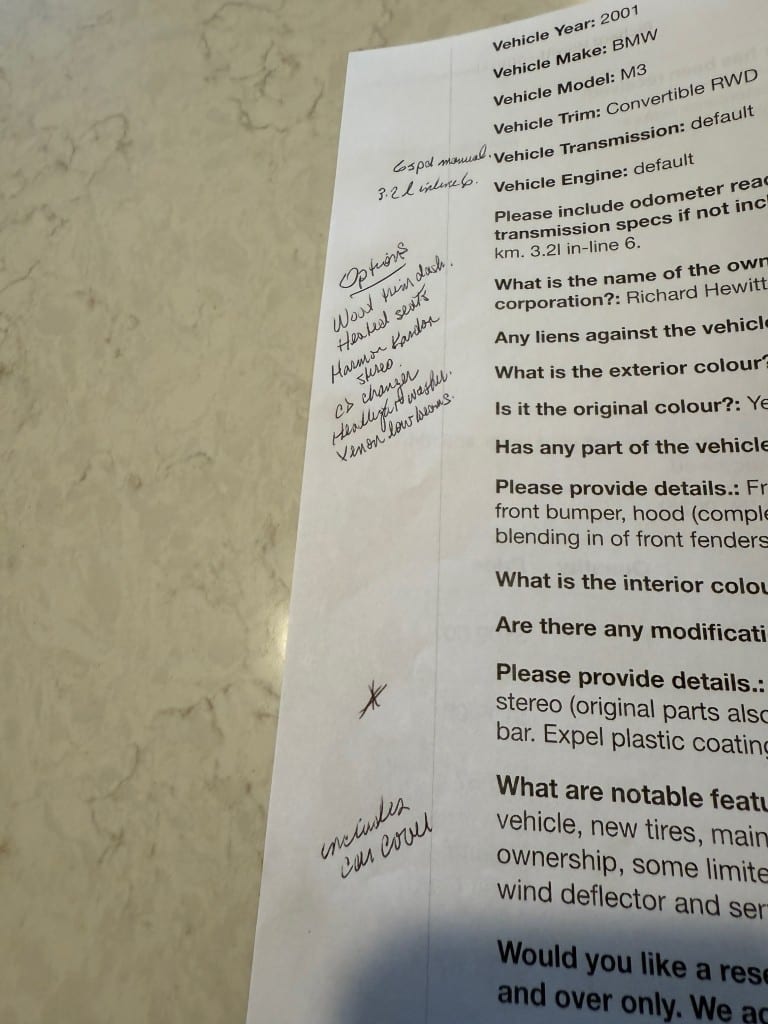 Vehicle Year: 2001
Vehicle Make: BMW
Vehicle Model: M3
Vehicle Trim: Convertible RWD
6 spd manual. Vehicle Transmission: default
3.2 l inline 6. Vehicle Engine: default
Please include odometer reac
transmission specs if not incl
km. 3.2l in-line 6.
What is the name of the own
corporation?: Richard Hewitt
Any liens against the vehicle
What is the exterior colour?
Is it the original colour?: Ye
Has any part of the vehicle
Please provide details.: Fr
front bumper, hood (comple
blending in of front fenders
What is the interior colou
Are there any modificati
Please provide details.:
stereo (original parts also
bar. Expel plastic coating
What are notable featu
vehicle, new tires, main
ownership, some limite
wind deflector and ser
Would you like a rese
and over only. We ac
Options
Wood trim dash.
Heated seats
Harmon Kardon
stereo.
CD changer
washer.
Xenon low beams.
*
includes
car cover